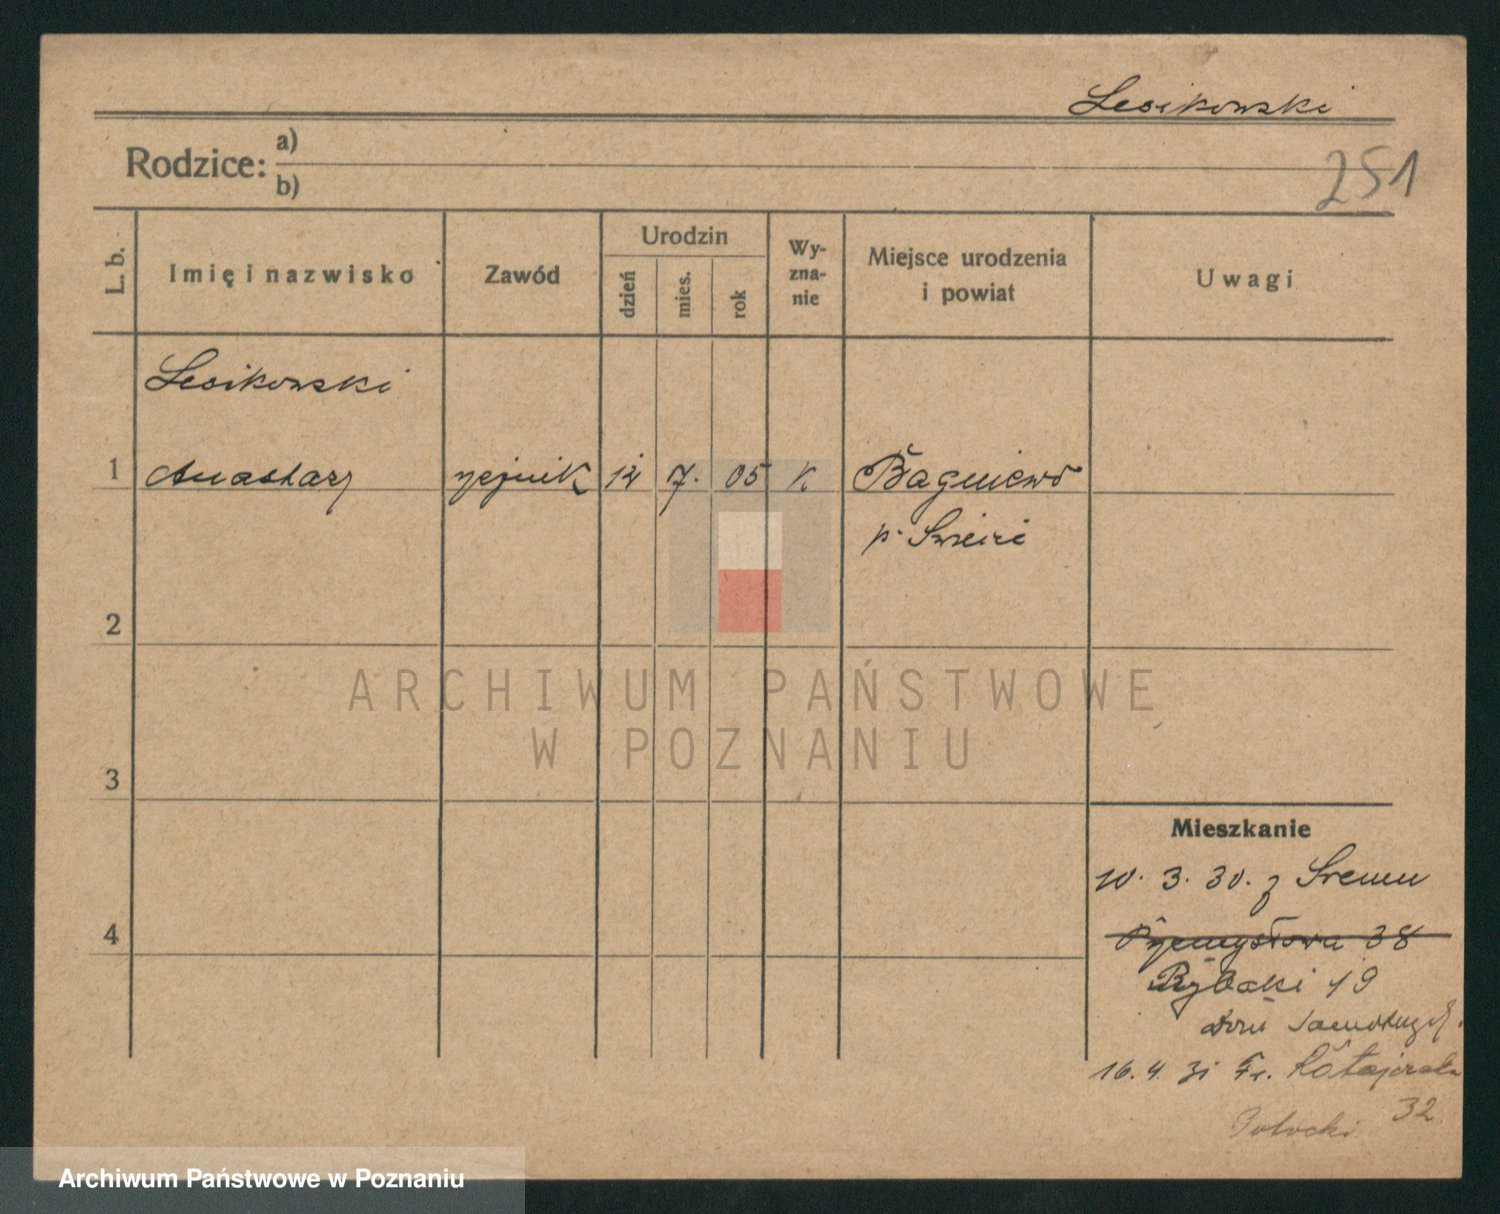 Lesikowski
Rodzice: a)
b)
251
L. b.
Imię i nazwisko
Zawód
Urodzin
dzień
mies.
rok
Wy-
zna-
nie
Miejsce urodzenia
i powiat
Uwagi
Lesikowski
1 Anastazy 14 7. 05 K Bagniewo
p. Świecie
2
ARCHIWUM PAŃSTWOWE
W POZNANIU
3
Mieszkanie
10. 3. 30. z Śremu
4
Przemysłowa 38
Rybaki 19
16. 4. 31 Fr. Ratajczaka
32
Potocki
Archiwum Państwowe w Poznaniu